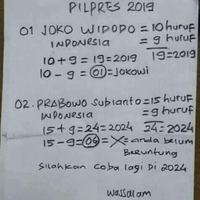 PILPRES 2019
01 JOKO WIDODO = 10 huruf
INDONESIA = 9 huruf
10 + 9 = 19 = 2019 19 = 2019
10 - 9 = 01 = Jokowi
02. PRABOWO Subianto = 15 huruf
INDONESIA = 9 huruf
15 + 9 = 24 = 2024 24 = 2024
15 - 9 = 06 = X = anda belum
Beruntung
Silahkan coba lagi Di 2024
Wassalam